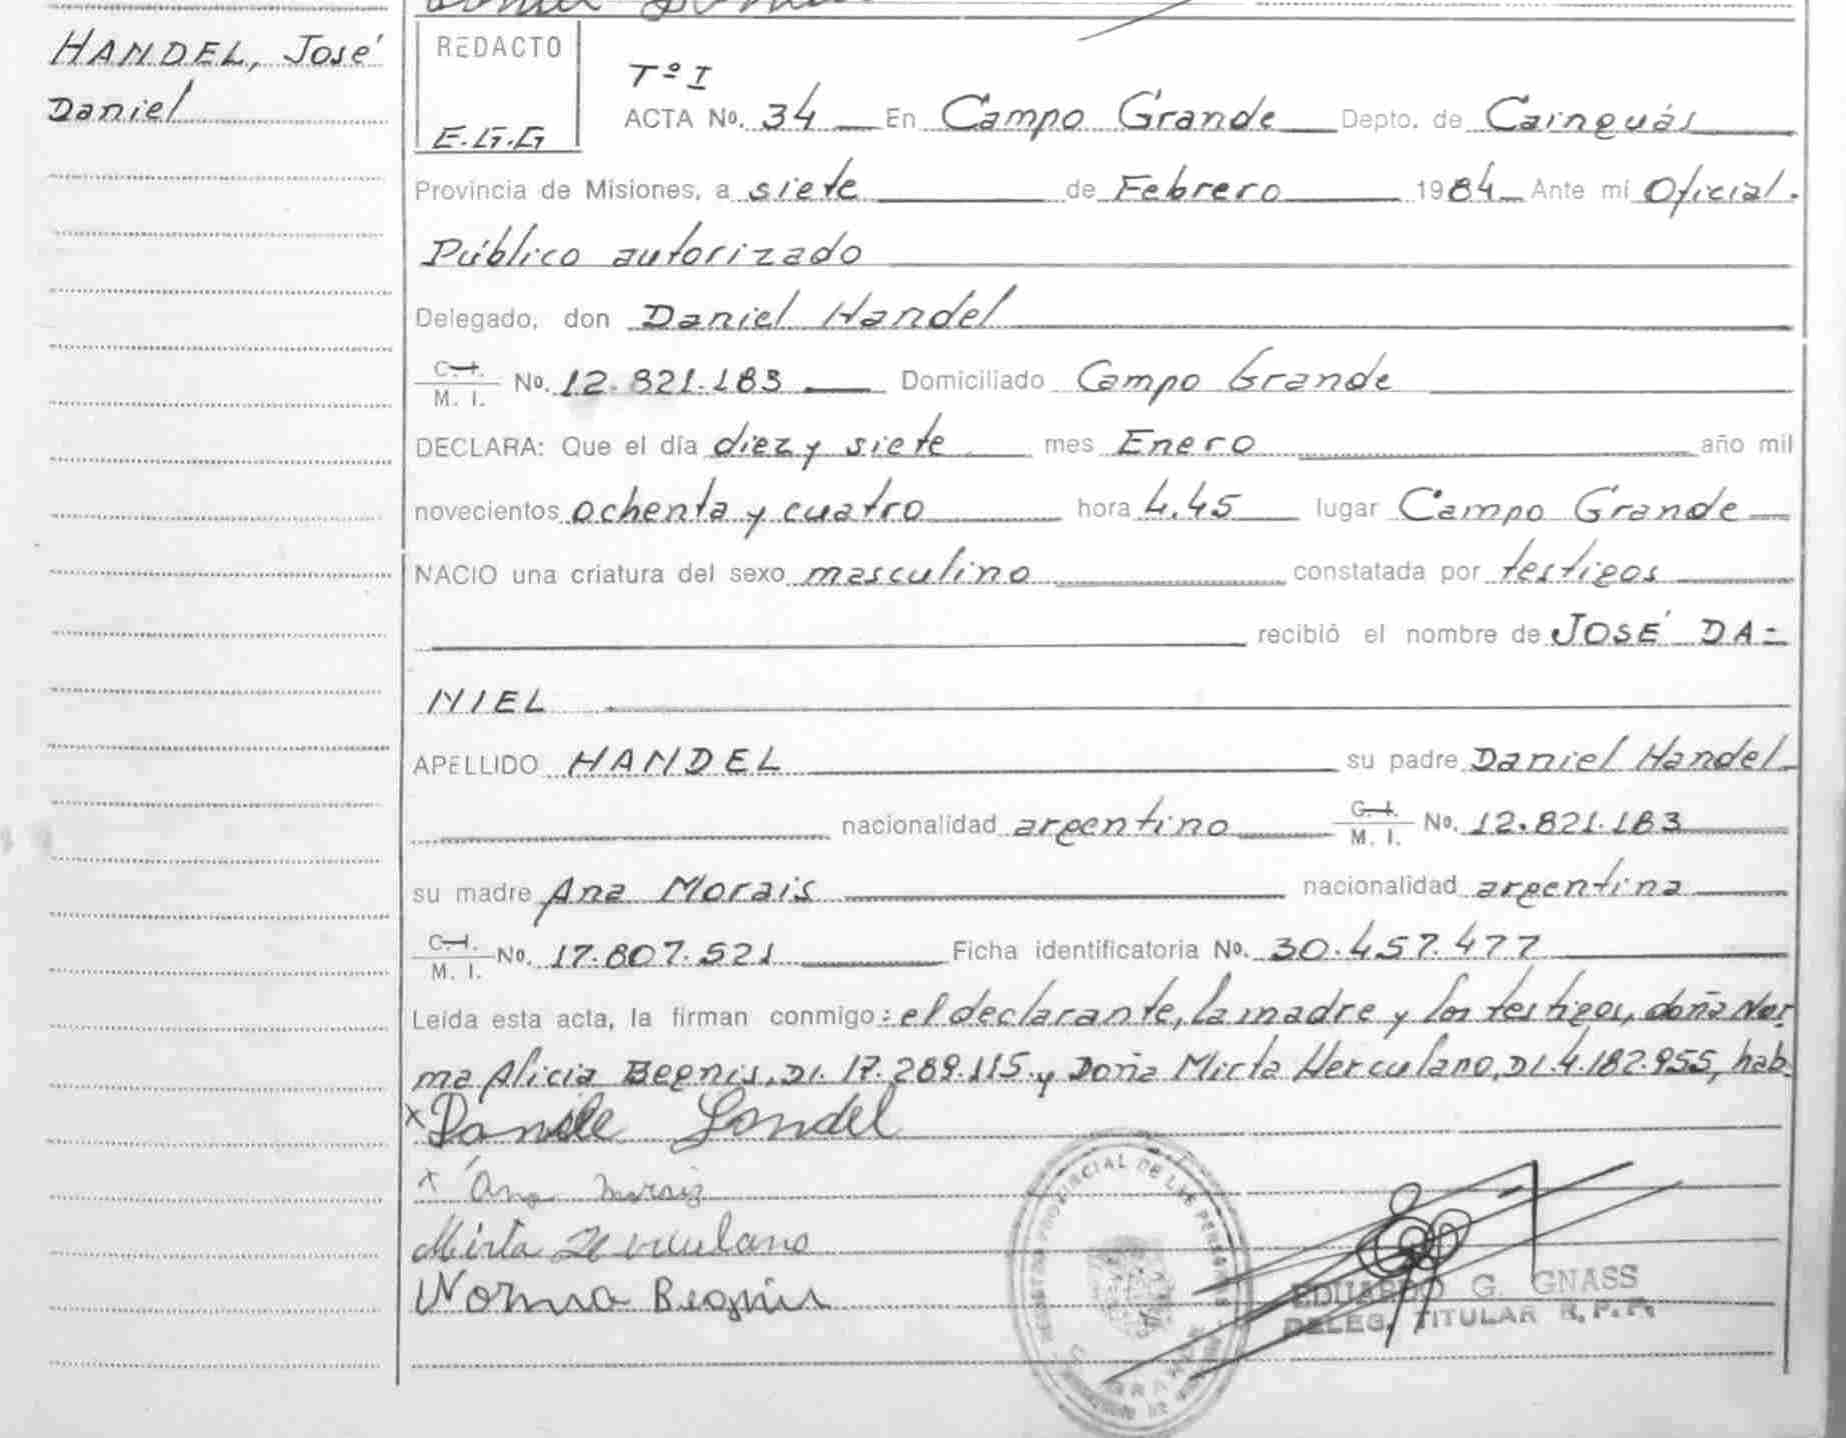 HANDEL, José
Daniel
REDACTO
E.G.G
Tº I
ACTA No. 34 En Campo Grande Depto. de Cainguás
Provincia de Misiones, a siete de Febrero 1984 Ante mí Oficial.
Público autorizado
Delegado, don Daniel Handel
C.I. M. I. No. 12.821.183 Domiciliado Campo Grande
DECLARA: Que el día diez y siete mes Enero año mil
novecientos ochenta y cuatro hora 4.45 lugar Campo Grande
NACIO una criatura del sexo masculino constatada por testigos
recibió el nombre de JOSÉ DA=
NIEL
APELLIDO HANDEL su padre Daniel Handel
nacionalidad argentino C.I. M. I. No. 12.821.183
su madre Ana Morais nacionalidad argentina
C.I. M. I. No. 17.807.521 Ficha identificatoria No. 30.457.477
Leída esta acta, la firman conmigo: el declarante, la madre y los testigos, doña Nor
ma Alicia Begnis, DI. 17.289.115 y Doña Mirta Herculano, DI. 4.182.955, hab.
x Danile Handel
x Ana Moraiz
Mirta Herculano
Norma Begnis
REGISTRO PROVINCIAL DE LAS PERSONAS
EDUARDO G. GNASS
DELEG. TITULAR R.P.P.